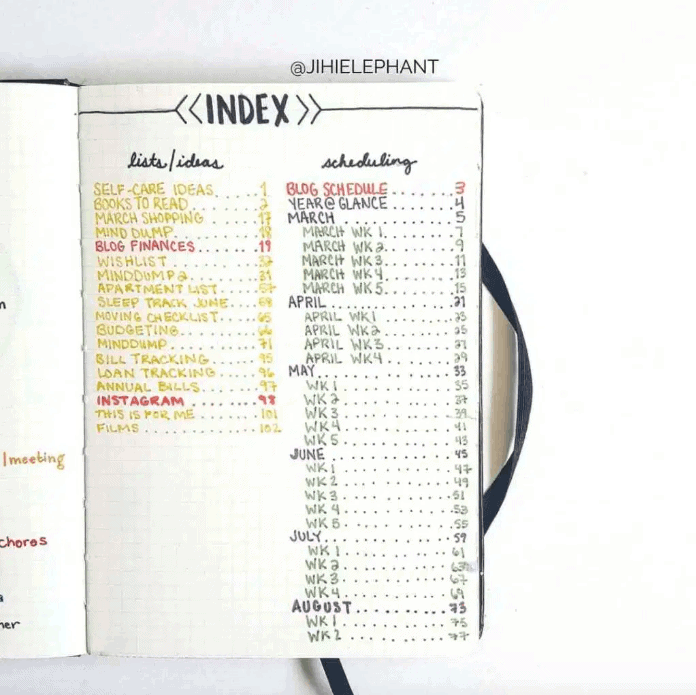 @JIHIELEPHANT
<<INDEX>>
lists/ideas
SELF-CARE IDEAS......1
BOOKS TO READ.......2
MARCH SHOPPING......17
MIND DUMP........18
BLOG FINANCES.......19
WISHLIST...........
MINDDUMP2........31
APARTMENT LIST.....57
SLEEP TRACK JUNE....58
MOVING CHECKLIST....65
BUDGETING.........66
MINDDUMP.........71
BILL TRACKING......95
LOAN TRACKING......96
ANNUAL BILLS.......97
INSTAGRAM........98
THIS IS FOR ME.......101
FILMS............102
scheduling
BLOG SCHEDULE.......3
YEAR@GLANCE.......4
MARCH............5
MARCH WK1.......7
MARCH WK2.......9
MARCH WK3.......11
MARCH WK4.......13
MARCH WK5.......15
APRIL............21
APRIL WK1.......23
APRIL WK2.......25
APRIL WK3.......27
APRIL WK4.......29
MAY.............33
WK1...........35
WK2...........37
WK3...........39
WK4...........41
WK5...........43
JUNE............45
WK1...........47
WK2...........49
WK3...........51
WK4...........53
WK5...........55
JULY............59
WK1...........61
WK2...........63
WK3...........67
WK4...........69
AUGUST..........73
WK1...........75
WK2...........77
/meeting
chores